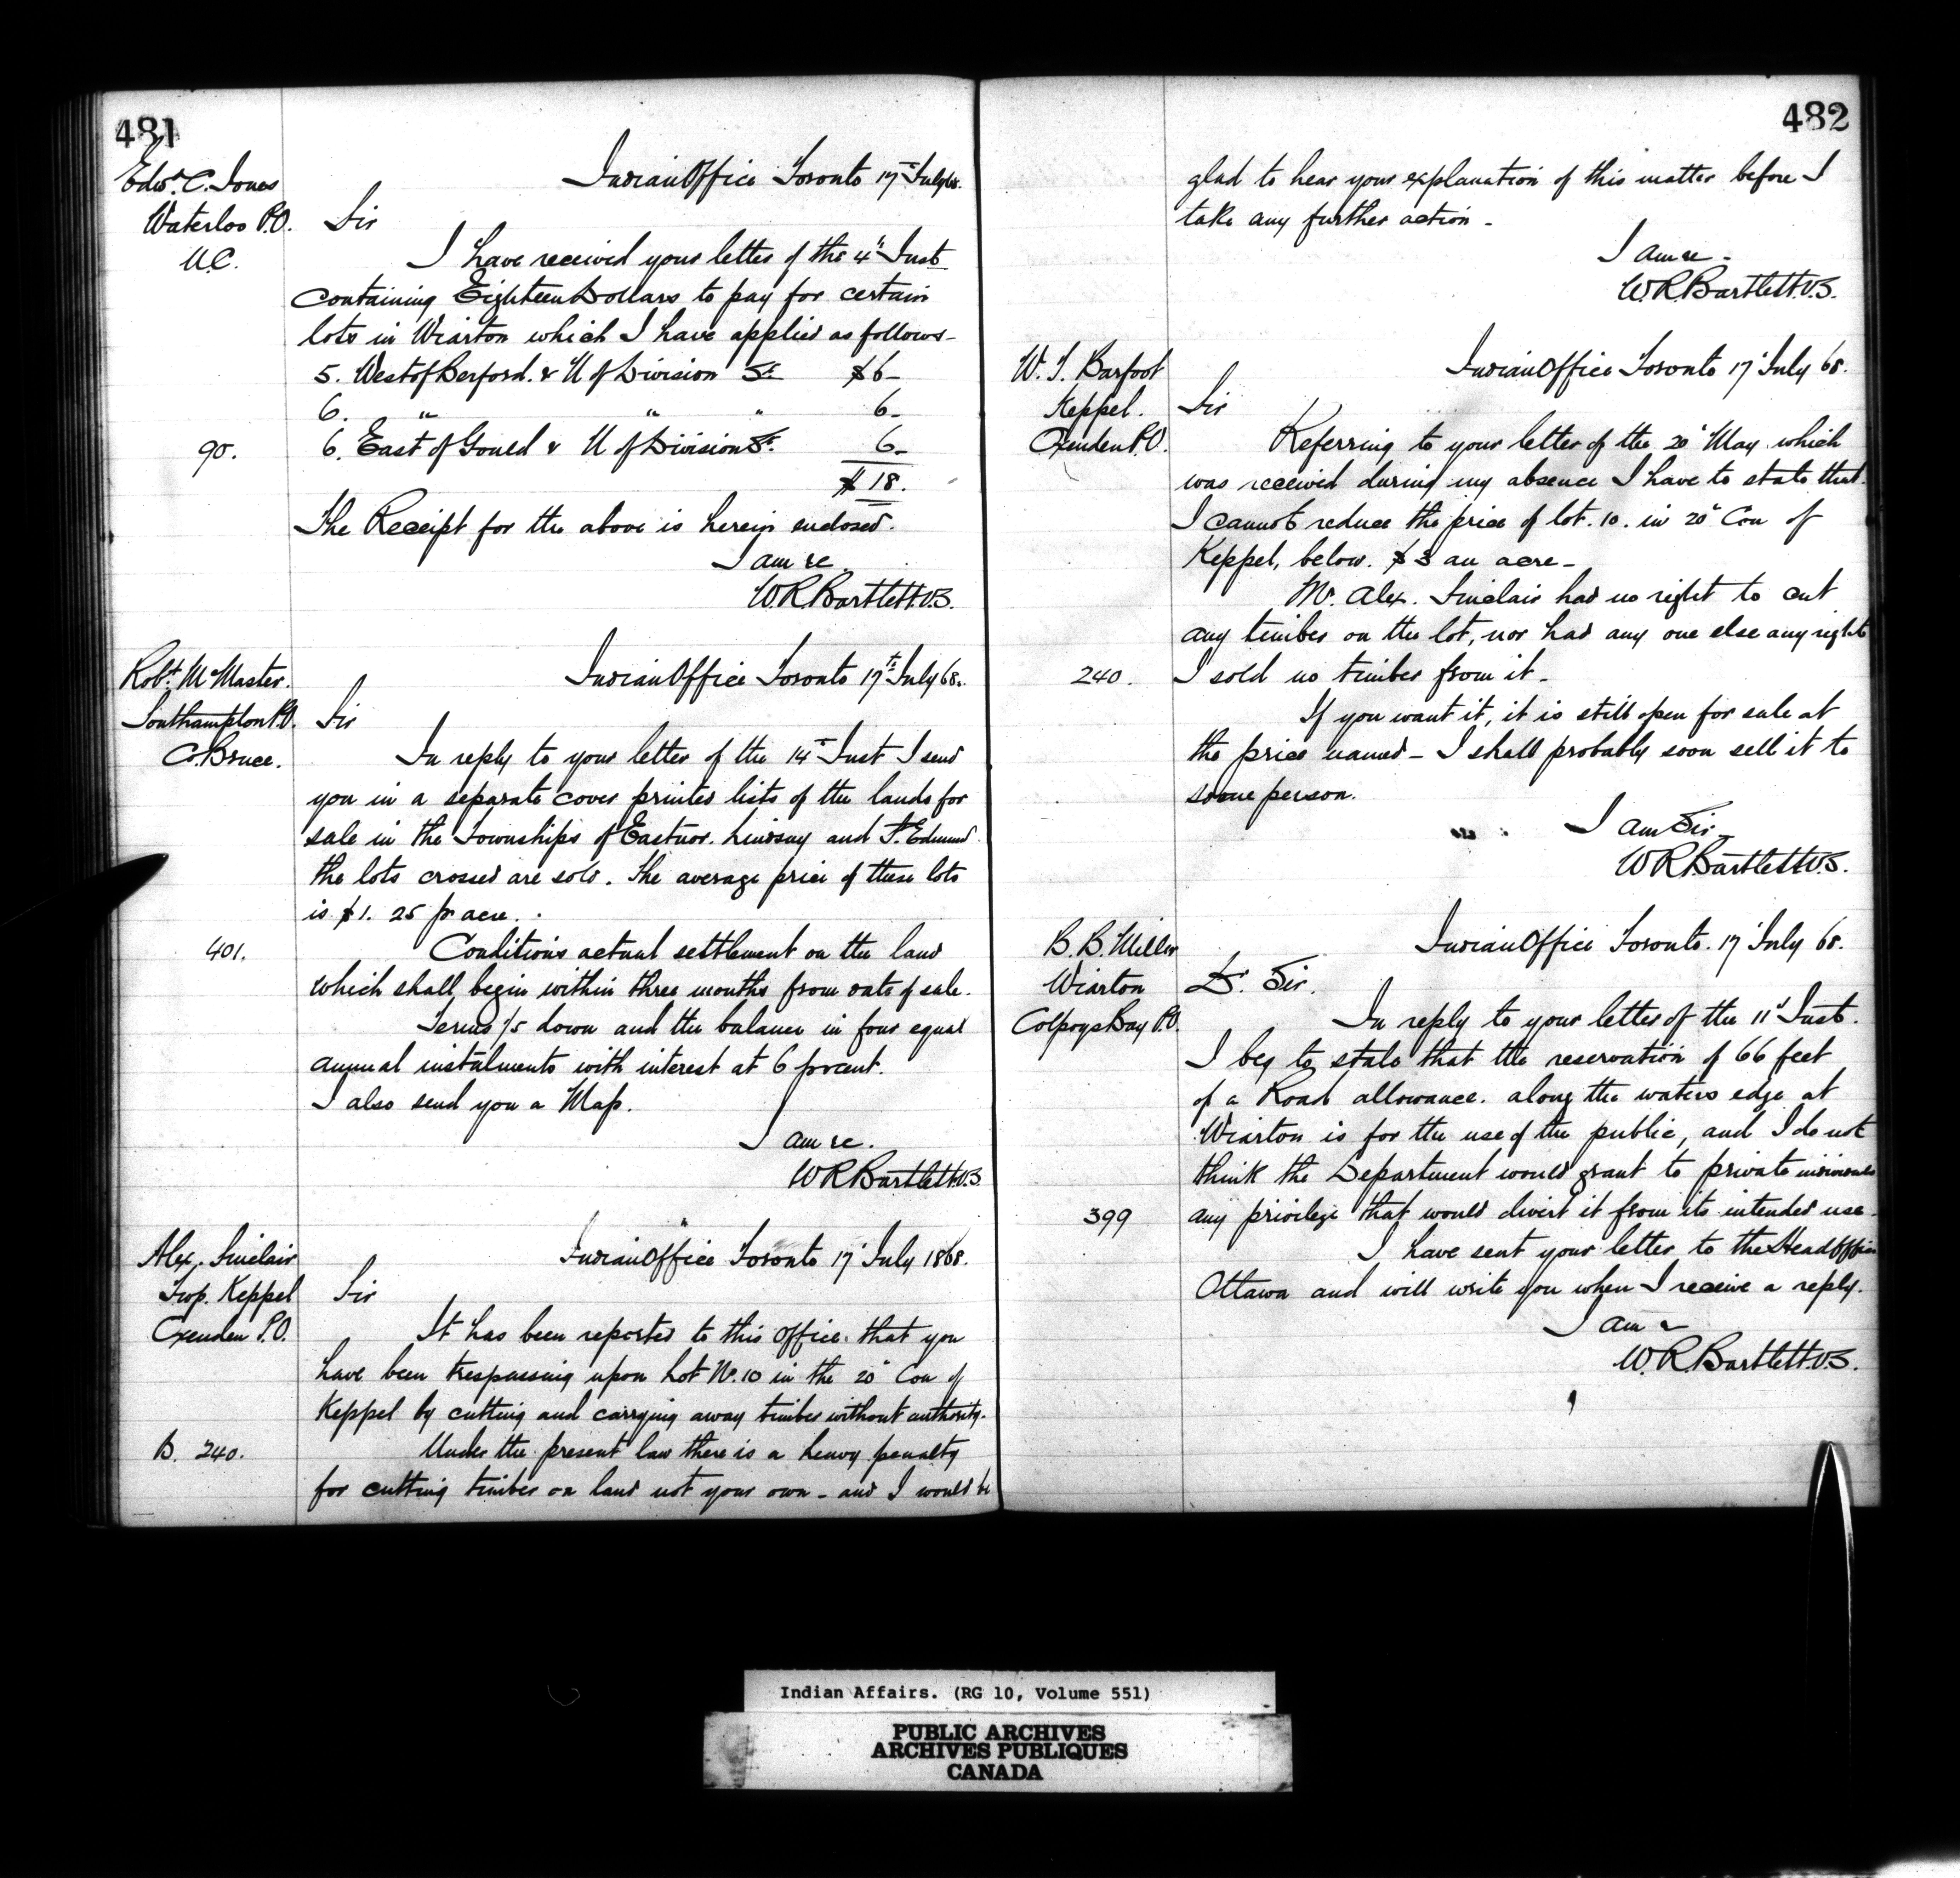 481
Edwd. C. Jones
Waterloo P.O.
U.C.
Indian Office Toronto 17th July 68.
Sir
I have received your letter of the 4th Inst
containing Eighteen Dollars to pay for certain
lots in Wiarton which I have applied as follows-
5. West of Berford. & N of Division St. $6-
6. " " " 6-
90.
6. East of Gould & N of Division St. 6-
$18.
The Receipt for the above is herein enclosed.
I am &c.
W.R. Bartlett. V.S.
Robt. McMaster.
Southampton P.O.
Co. Bruce.
Indian Office Toronto 17th July 68.
Sir
In reply to your letter of the 14th Inst I send
you in a separate cover printed lists of the lands for
sale in the Townships of Eastnor. Lindsay and St. Edmund
the lots crossed are sold. The average price of these lots
is $1. 25 pr acre.
401.
Conditions actual settlement on the land
which shall begin within three months from date of sale.
Terms 1/5 down and the balance in four equal
annual instalments with interest at 6 prcent.
I also send you a Map.
I am &c.
W R Bartlett. V.S.
Alex. Sinclair
Twp. Keppel
Oxenden P.O.
Indian Office Toronto 17" July 1868.
Sir
It has been reported to this Office that you
have been trespassing upon Lot No. 10 in the 20" Con of
Keppel by cutting and carrying away timber without authority.
B. 240.
Under the present law there is a heavy penalty
for cutting timber on land not your own - and I would be
482
glad to hear your explanation of this matter before I
take any further action -
I am &c -
W.R. Bartlett. V.S.
W. T. Barfoot
Keppel.
Oxenden P.O.
Indian Office Toronto 17" July 68.
Sir
Referring to your letter of the 20" May which
was received during my absence I have to state that
I cannot reduce the price of lot. 10. in 20" Con of
Keppel, below. $3 an acre -
Mr. Alex. Sinclair had no right to cut
any timber on the lot, nor had any one else any right
240.
I sold no timber from it -
If you want it, it is still open for sale at
the price named - I shall probably soon sell it to
some person.
I am Sir -
W R Bartlett V.S.
B. B. Miller
Wiarton
Colpoys Bay P.O.
Indian Office Toronto. 17" July 68.
D. Sir.
In reply to your letter of the 11" Inst.
I beg to state that the reservation of 66 feet
of a Road allowance. along the waters edge at
Wiarton is for the use of the public, and I do not
think the Department would grant to private individuals
399
any privilege that would divert it from its intended use -
I have sent your letter to the Head Office
Ottawa and will write you when I receive a reply.
I am &
W. R. Bartlett. V.S.
Indian Affairs. (RG 10, Volume 551)
PUBLIC ARCHIVES
ARCHIVES PUBLIQUES
CANADA